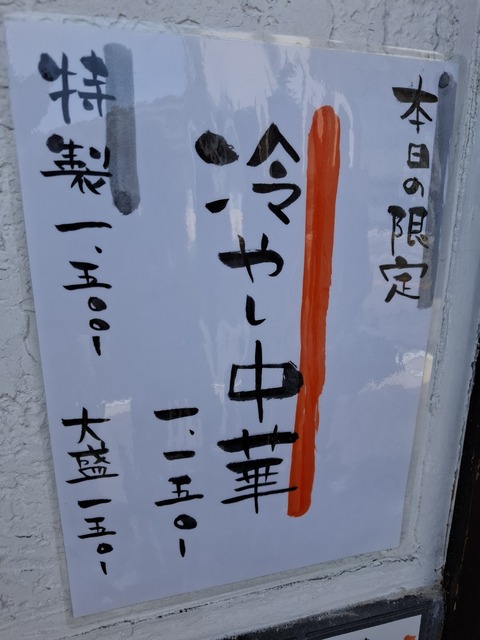 本日の限定
冷やし中華
一、一五〇-
特製 一、五〇〇-
大盛 一五〇-